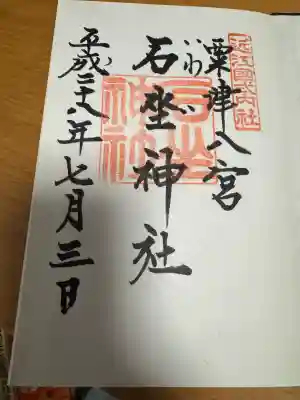 近江國式内社
粟津八宮
いわい
石坐神社
石坐神社
平成二十八年七月三日